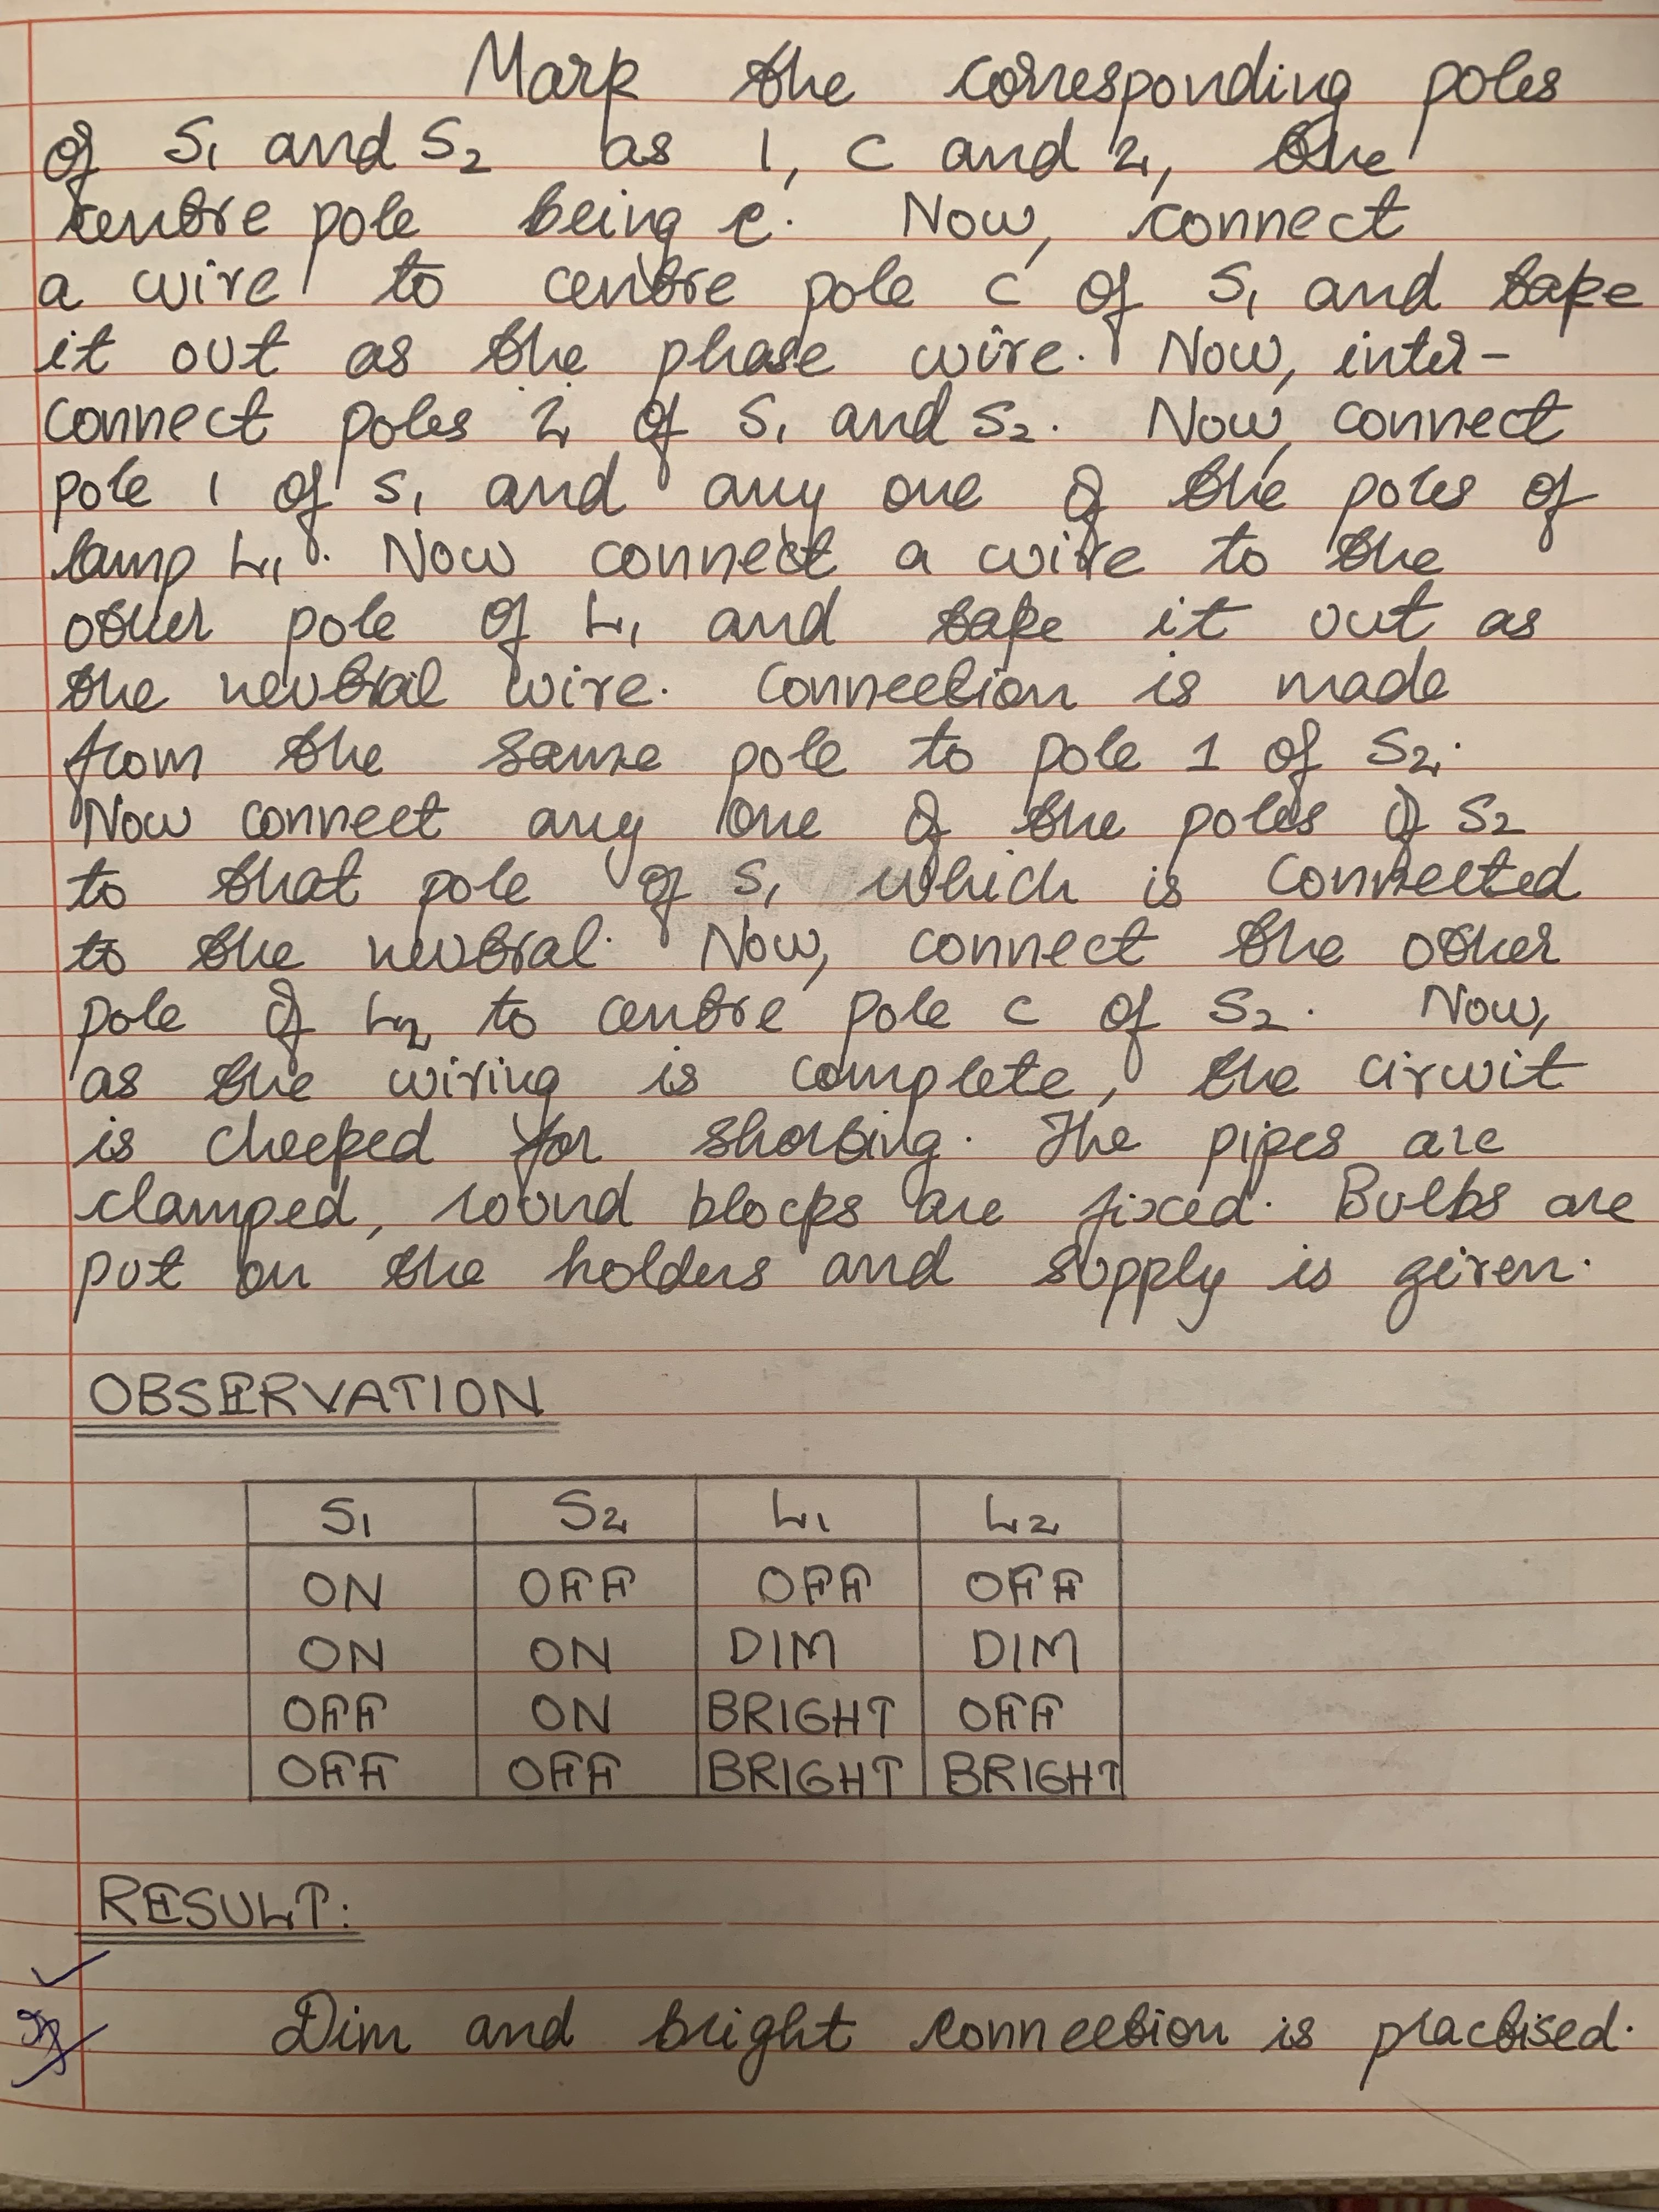 Mark the corresponding poles
of S₁ and S₂ as 1, C and 2, the
centre pole being C. Now, connect
a wire to centre pole C of S₁ and take
it out as the phase wire. Now, inter-
connect poles 2 of S₁ and S₂. Now, connect
pole 1 of S₁ and any one of the poles of
lamp L₁. Now connect a wire to the
other pole of L₁ and take it out as
the neutral wire. Connection is made
from the same pole to pole 1 of S₂.
Now connect any one of the poles of S₂
to that pole of S₁ which is connected
to the neutral. Now, connect the other
pole of L₂ to centre pole C of S₂. Now,
as the wiring is complete, the circuit
is checked for shorting. The pipes are
clamped, round blocks are fixed. Bulbs are
put on the holders and supply is given.
OBSERVATION
S₁ S₂ L₁ L₂
ON OFF OFF OFF
ON ON DIM DIM
OFF ON BRIGHT OFF
OFF OFF BRIGHT BRIGHT
RESULT:
Dim and bright connection is practised.